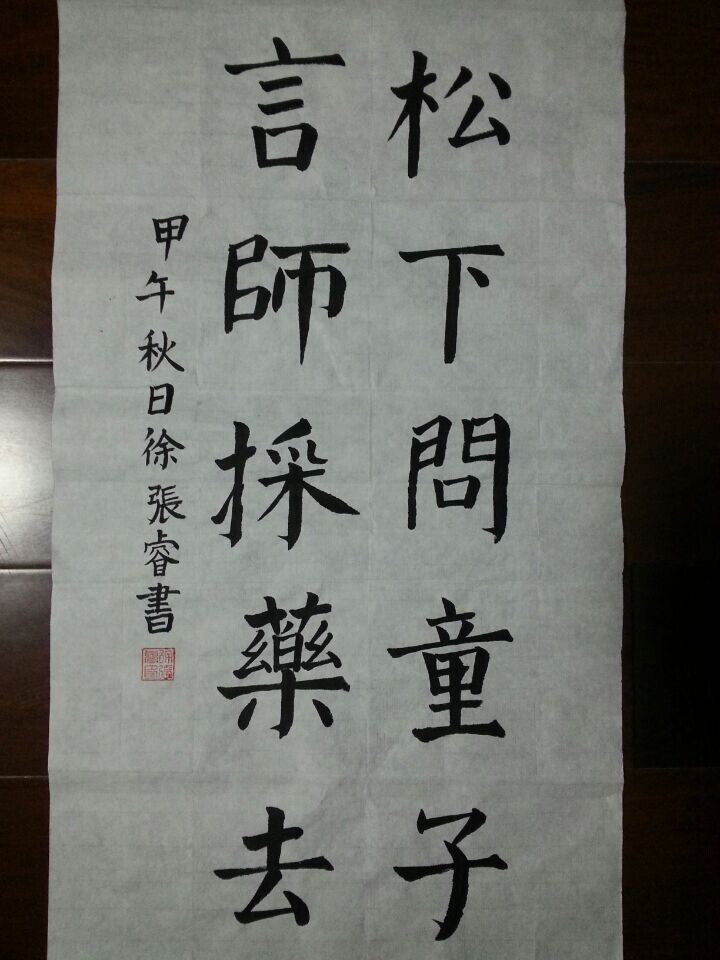 松下問童子
言師採藥去
甲午秋日徐張睿書